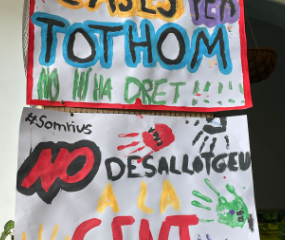 CASES PER
TOTHOM
NO HI HA DRET!!!!!
#Somrius
NO DESALLOTGEU
A LA
GENT